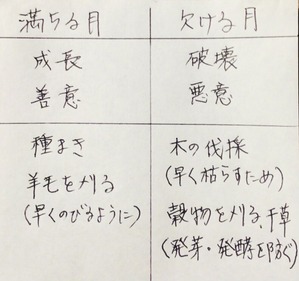 満ちる月
欠ける月
成長
破壊
善意
悪意
種まき
木の伐採
羊毛を刈る
(早く枯らすため)
(早くのびるように)
穀物を刈る、干草
(発芽・発酵を防ぐ)